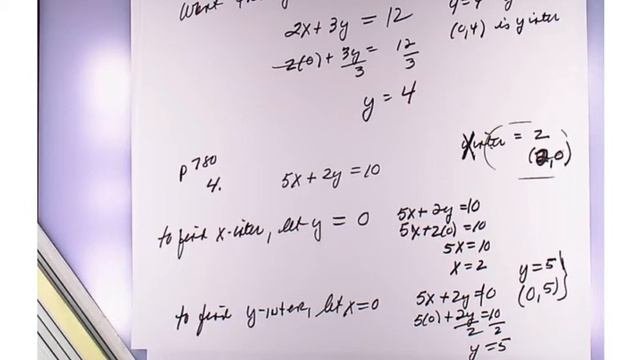 want
2x + 3y = 12
2(0) + 3y/3 = 12/3
y = 4
(0,4) is y inter
x inter = 2
(2,0)
p 780
4.
5x + 2y = 10
to find x-inter, let y = 0
5x + 2y = 10
5x + 2(0) = 10
5x = 10
x = 2
to find y-inter, let x = 0
5x + 2y = 10
5(0) + 2y/2 = 10/2
y = 5
y = 5
(0,5)